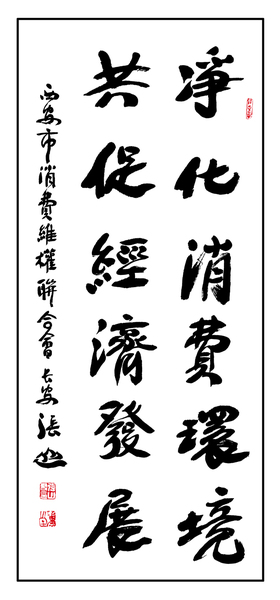 淨化消費環境
共促經濟發展
西安市消費維權聯合會長安張